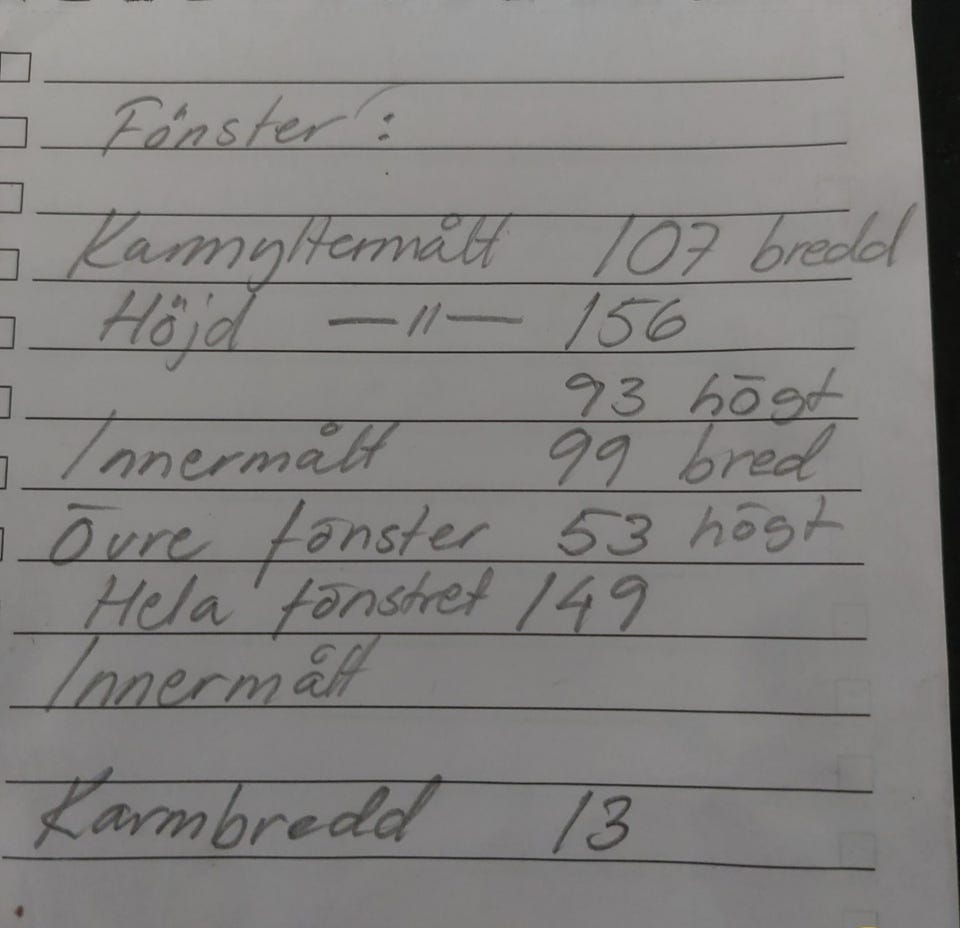 Fönster :
Karmyttermått 107 bredd
Höjd —〃— 156
93 högt
Innermått 99 bred
Övre fönster 53 högt
Hela fönstret 149
Innermått
Karmbredd 13